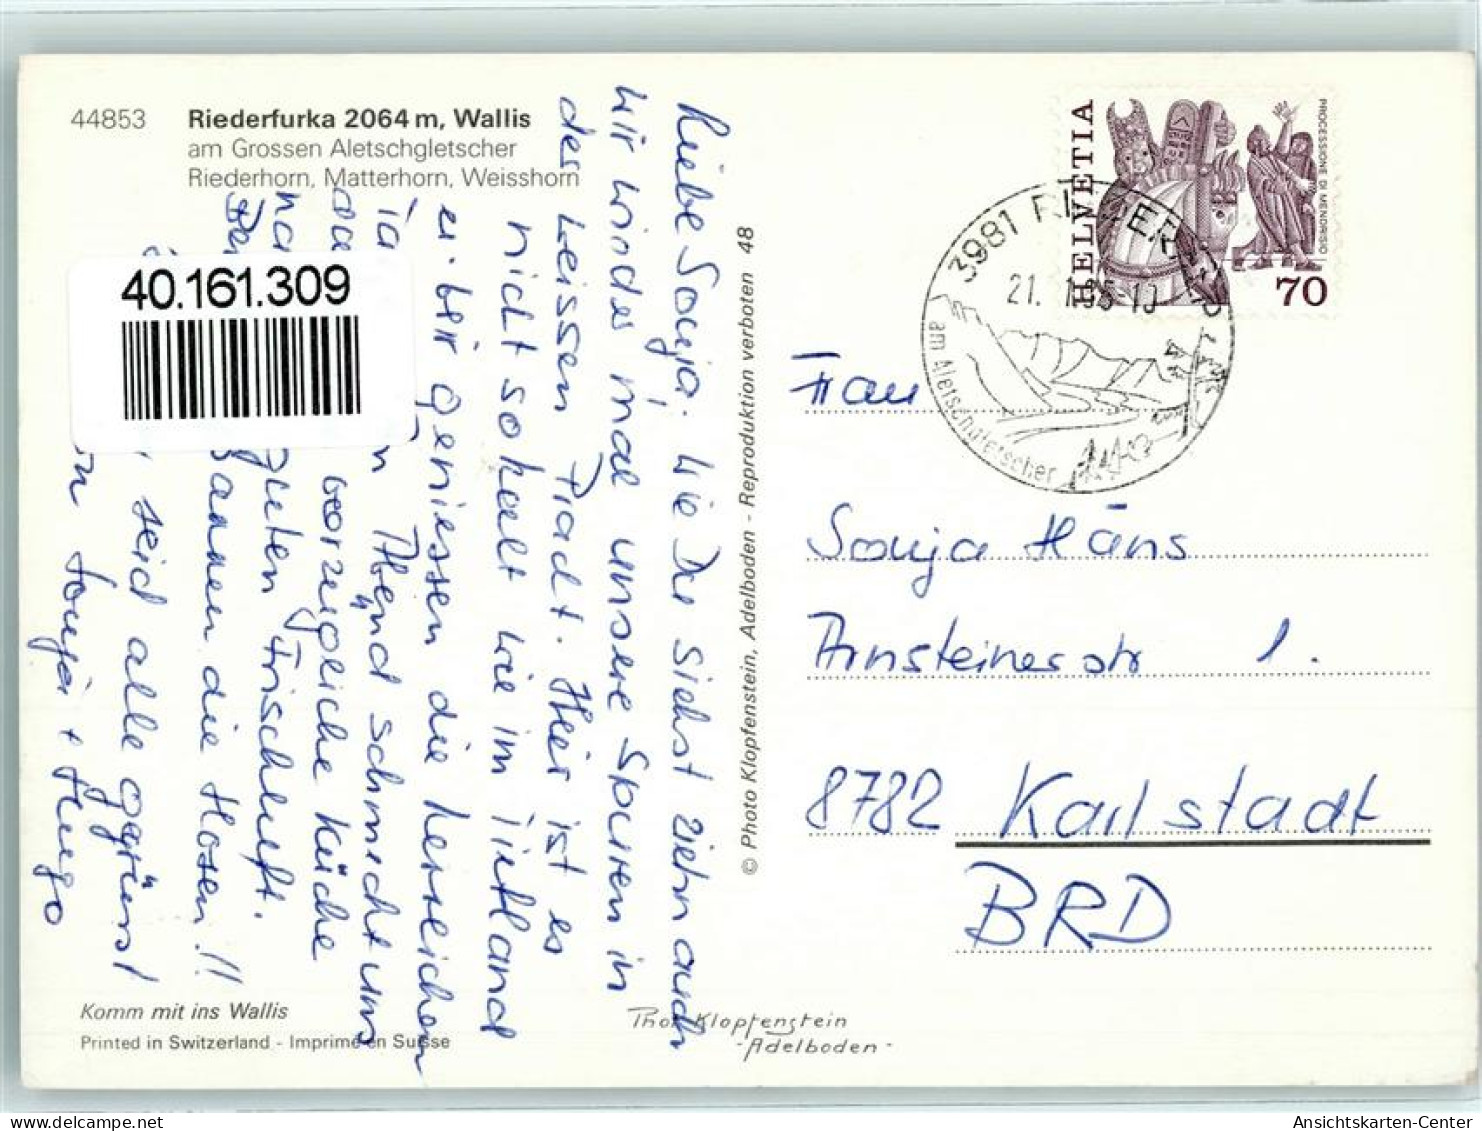 44853
Riederfurka 2064 m, Wallis
am Grossen Aletschgletscher
Riederhorn, Matterhorn, Weisshorn
40.161.309
Liebe Sonja! Wie Du siehst ziehn auch
wir wieder mal unsere Spuren in
der weissen Pracht. Hier ist es
nicht so kalt wie im Tiefland
wir geniessen die herrlichen
Abend schmeckt uns
vorzügliche Küche
guten Frischluft.
spannen die Hosen!!
seid alle gegrüsst
Sonja + Hugo
Komm mit ins Wallis
Printed in Switzerland - Imprimé en Suisse
© Photo Klopfenstein, Adelboden - Reproduktion verboten 48
Photo Klopfenstein
- Adelboden -
HELVETIA
PROCESSIONE DI MENDRISIO
70
3981 RIEDERALP
am Aletschgletscher
Frau
Sonja Häns
Arnsteinerstr 1.
8782 Karlstadt
BRD
Ansichtskarten-Center